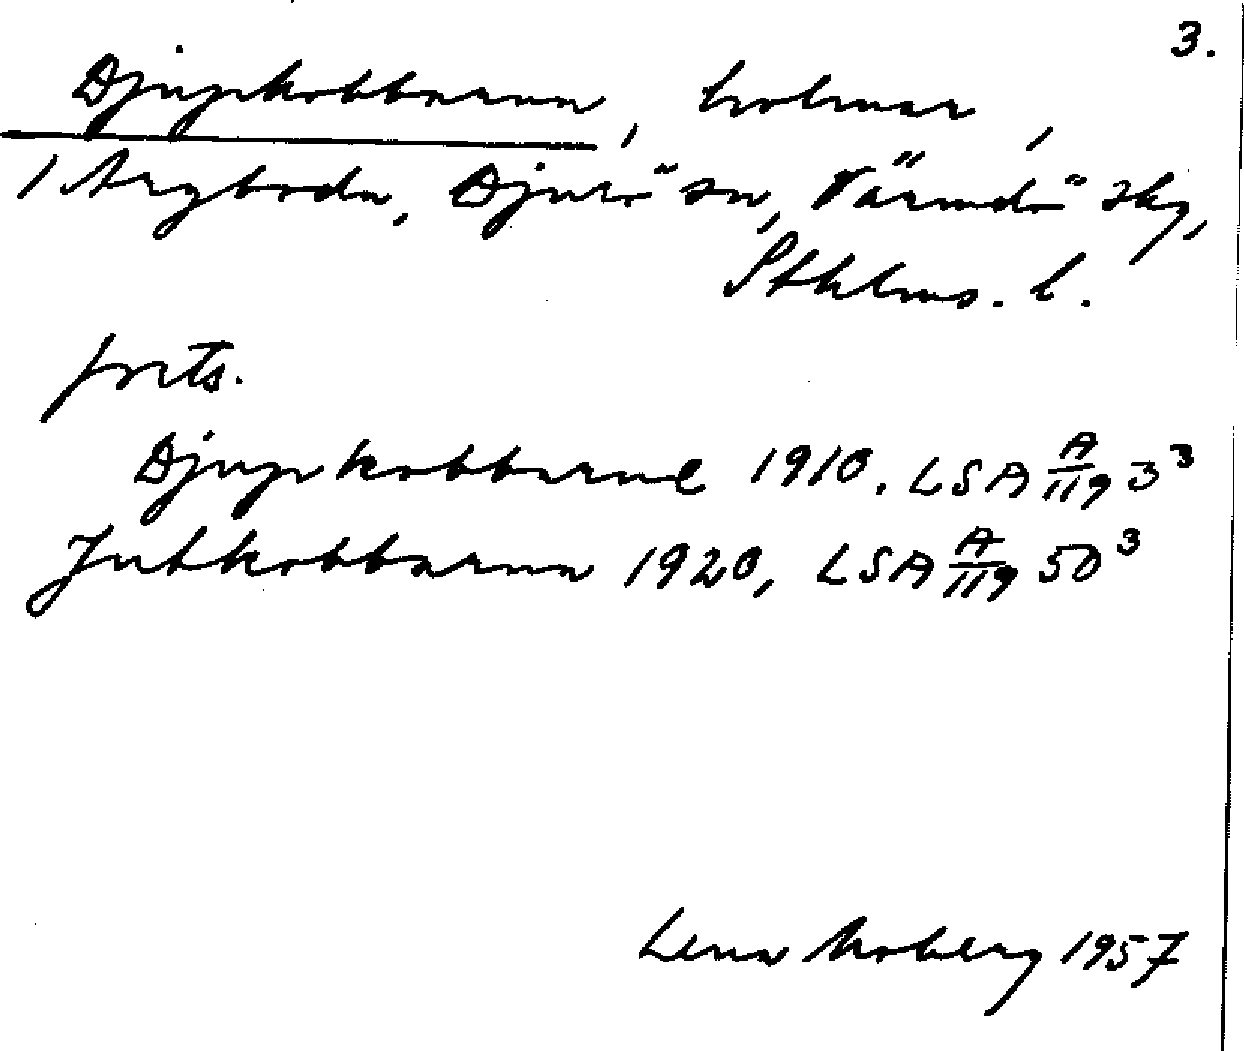 3.
Djupkobbarna, holmar,
Djurö sn, Värmdö skg,
Sthlms. l.
forts.
Djupkobbarne 1910. LSA A/119 3³
Jutkobbarna 1920, LSA A/119 50³
Lena Moberg 1957